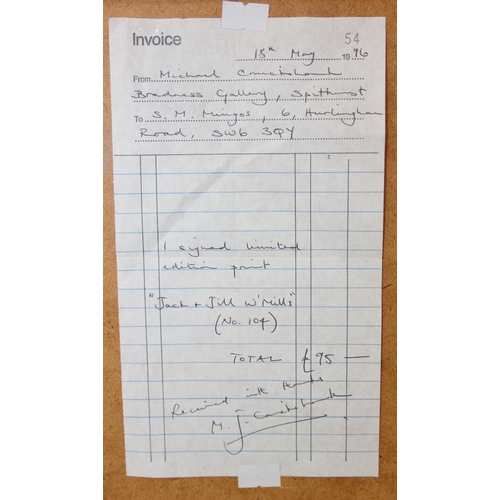 Invoice 54
15th May 1996
From Michael Cruickshank
Bradness Gallery, Spithurst
To S. M. Mingos, 6, Hurlingham
Road, SW6 3QY
1 signed limited
edition print
"Jack + Jill W'Mills"
(No. 104)
TOTAL £95 —
Received with thanks
M. J. Cruickshank